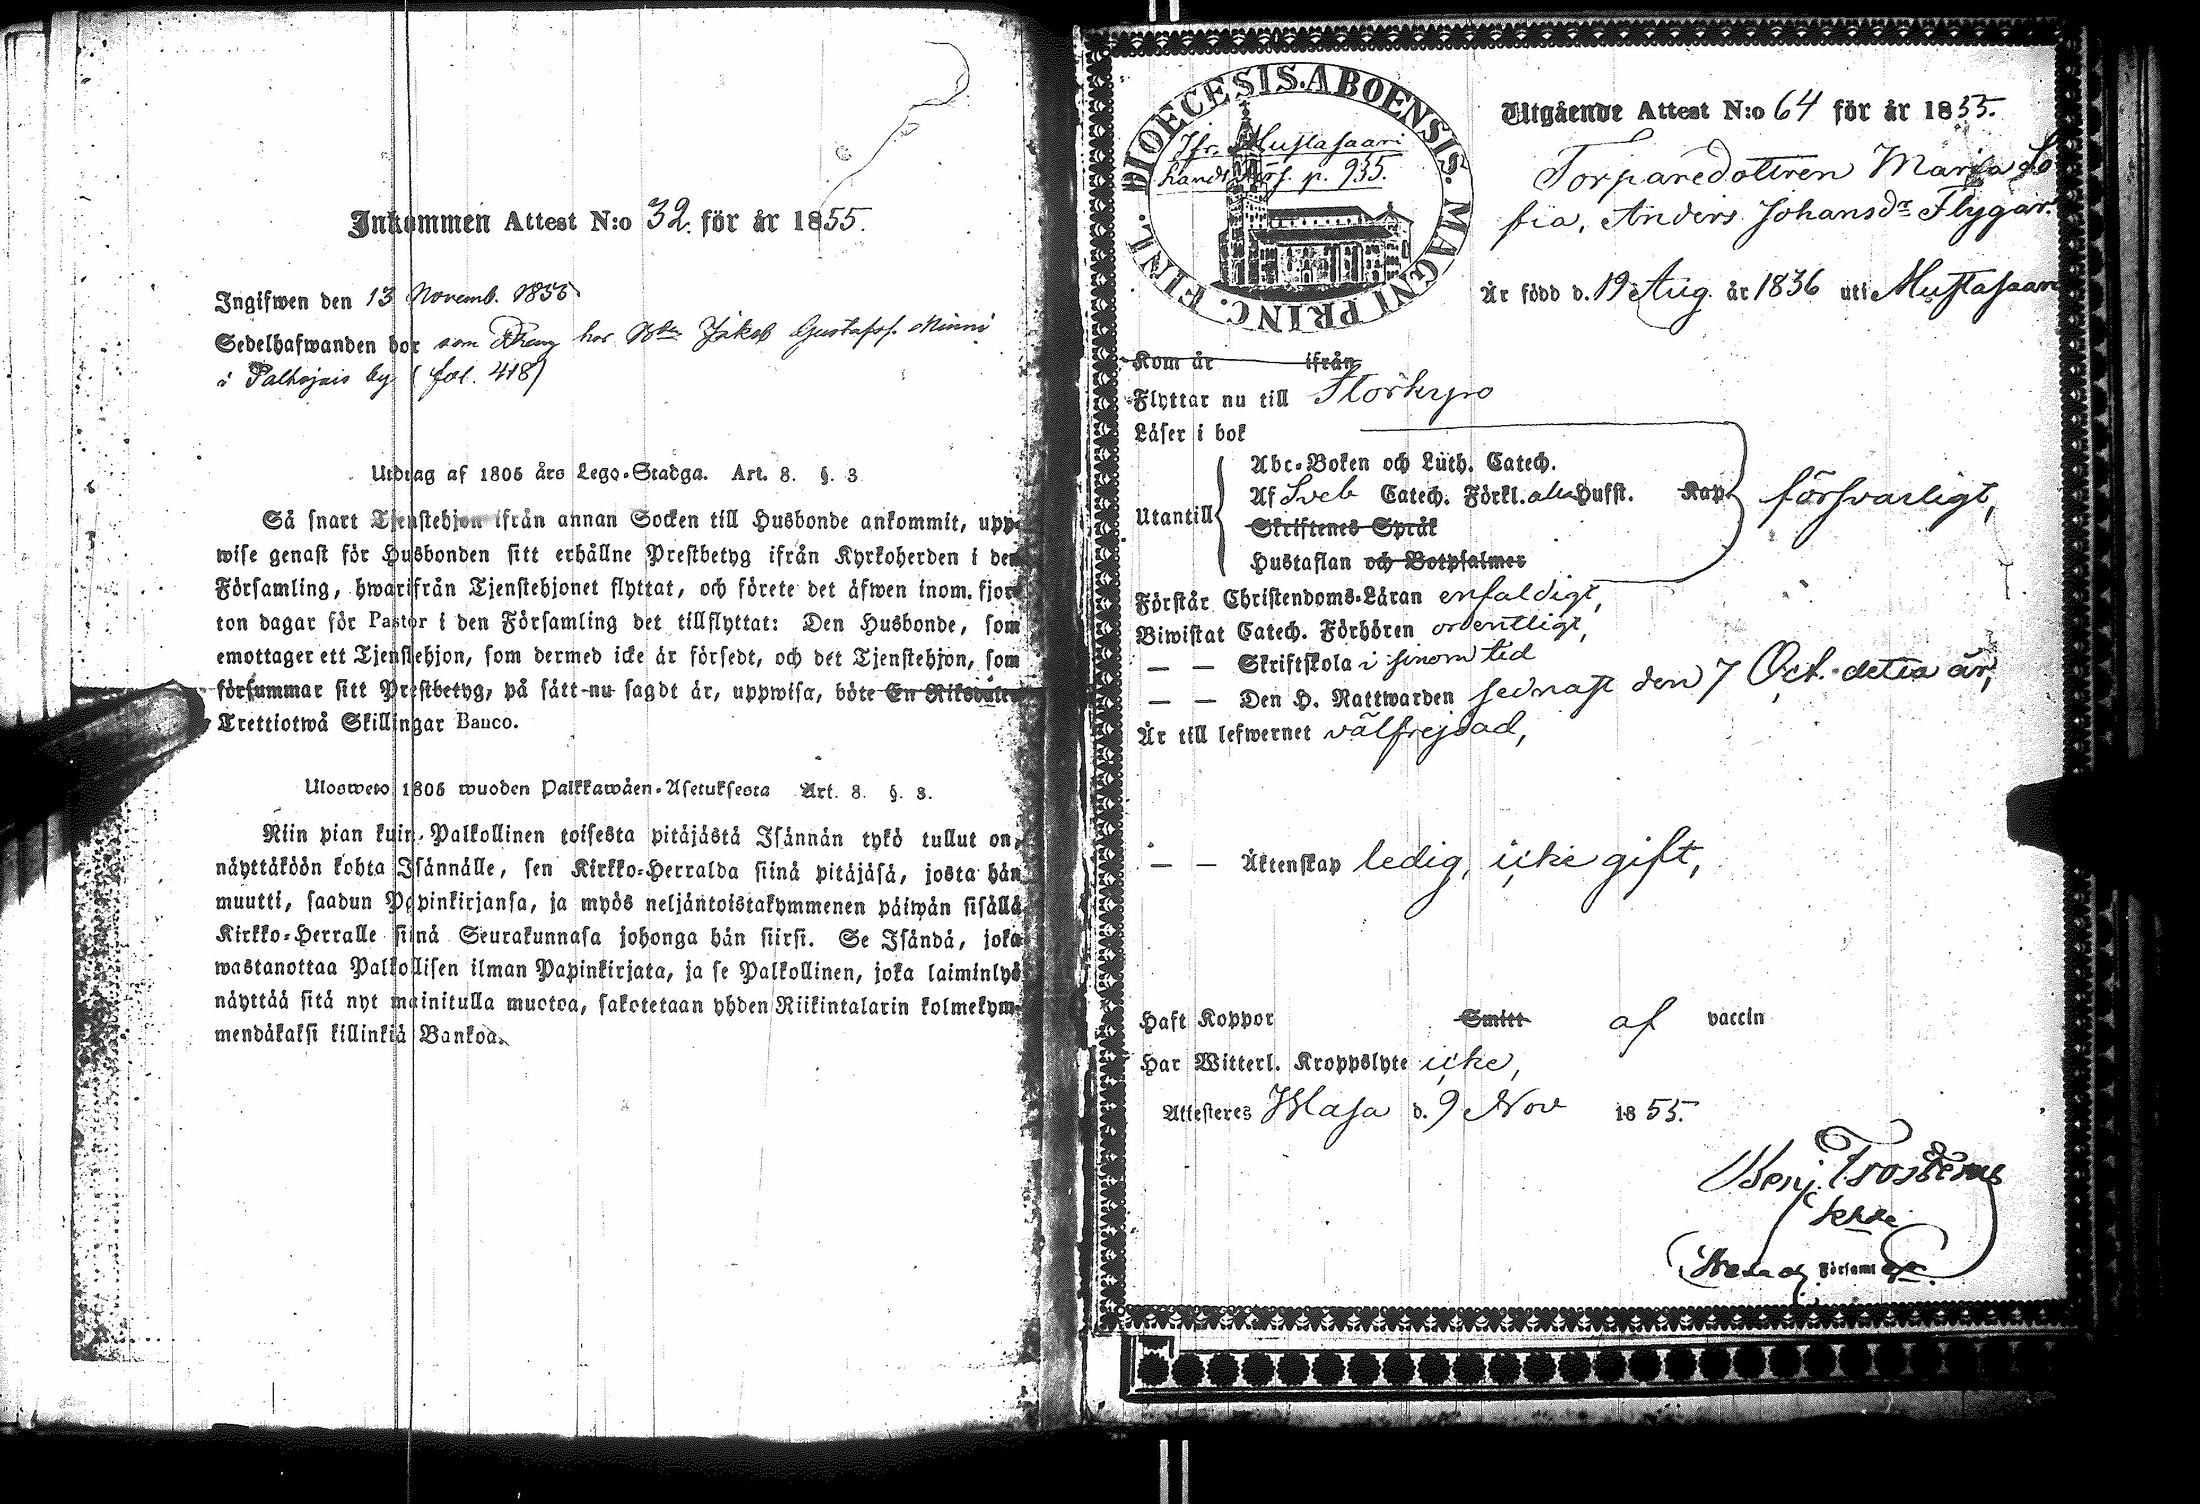 Inkommen Attest N:o 32. för år 1855.
Ingifwen den 13 Novemb. 1855
Sedelhafwanden bor som Dräng hos Jakob Gustafss. Minni
i Palhojais by (fol. 418)
Utdrag af 1805 års Lego-Stadga. Art. 8. §. 3
Så snart Tjenstehjon ifrån annan Socken till Husbonde ankommit, upp-
wise genast för Husbonden sitt erhållne Prestbetyg ifrån Kyrkoherden i den
Församling, hwarifrån Tjenstehjonet flyttat, och förete det äfwen inom fjor-
ton dagar för Pastor i den Församling det tillflyttat: Den Husbonde, som
emottager ett Tjenstehjon, som dermed icke är försedt, och det Tjenstehjon, som
försummar sitt Prestbetyg, på sätt nu sagdt är, uppwisa, böte En Riksdaler
Trettiotwå Skillingar Banco.
Ulosweto 1805 wuoden Palkkawäen-Asetuksesta Art. 8. §. 3.
Niin pian kuin Palkollinen toisesta pitäjästä Isännän tykö tullut on,
näyttäköön kohta Isännälle, sen Kirkko-Herralda siinä pitäjäsä, josta hän
muutti, saadun Papinkirjansa, ja myös neljäntoistakymmenen päiwän sisällä
Kirkko-Herralle siinä Seurakunnasa johonga hän siirsi. Se Isändä, joka
wastanottaa Palkollisen ilman Papinkirjata, ja se Palkollinen, joka laiminlyö
näyttää sitä nyt mainitulla muotoa, sakotetaan yhden Riikintalarin kolmekym-
mendäkaksi killinkiä Bankoa.
DIOECESIS. ABOENSIS. MAGNI PRINC. FINL.
Jfr. Mustasaari
handl. Förs. p. 935.
Utgående Attest N:o 64 för år 1855.
Torparedottren Maria So
fia, Anders Johansdr Flygar.
Är född d. 19 Aug. år 1836 uti Mustasaari
Kom år ifrån
Flyttar nu till Storkyro
Läser i bok
Abc-Boken och Luth. Catech.
Utantill Af Sveb Catech. Förkl. alla Hufst. Kap. försvarligt,
Skriftenes Språk
Hustaflan och Botpsalmer
Förstår Christendoms-Läran enfaldigt,
Biwistat Catech. Förhören ordentligt,
— — Skriftskola i sinom tid
— — Den H. Nattwarden sednast den 7 Oct. detta år,
Är till lefwernet välfrejdad,
— — Äktenskap ledig, icke gift,
Haft Koppor Smitt af vaccin
Har Witterl. Kroppslyte icke,
Attesteres Wasa d. 9 Nov 1855.
Benj. Frosterus
Förseml